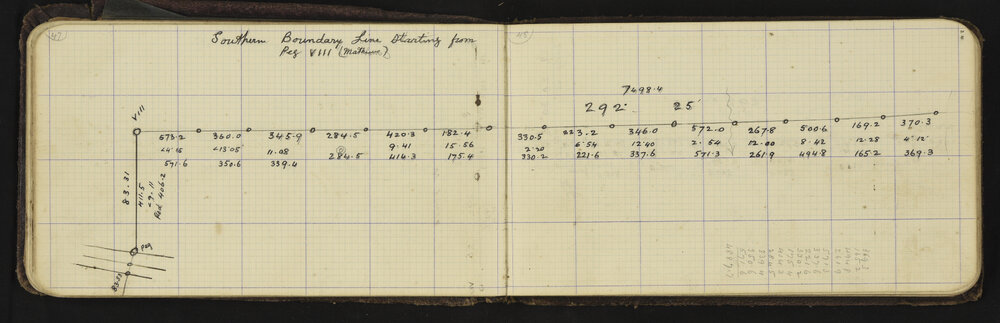 Southern Boundary Line Starting from
Peg VIII (Mathieu)
VIII
573.2 360.0 345.9 284.5 420.3 182.4
<4.15 <13.05 11.08 9.41 15.56
571.6 350.6 339.4 284.5 414.3 175.4
8.3.31
411.5
-9.11
Red 406.2
Peg
45
24
7498.4
292 25
330.5 223.2 346.0 572.0 267.8 500.6 169.2 370.3
2.20 6.54 12.40 2.54 12.00 8.42 12.28 4.12
330.2 221.6 337.6 571.3 261.9 494.8 165.2 369.3